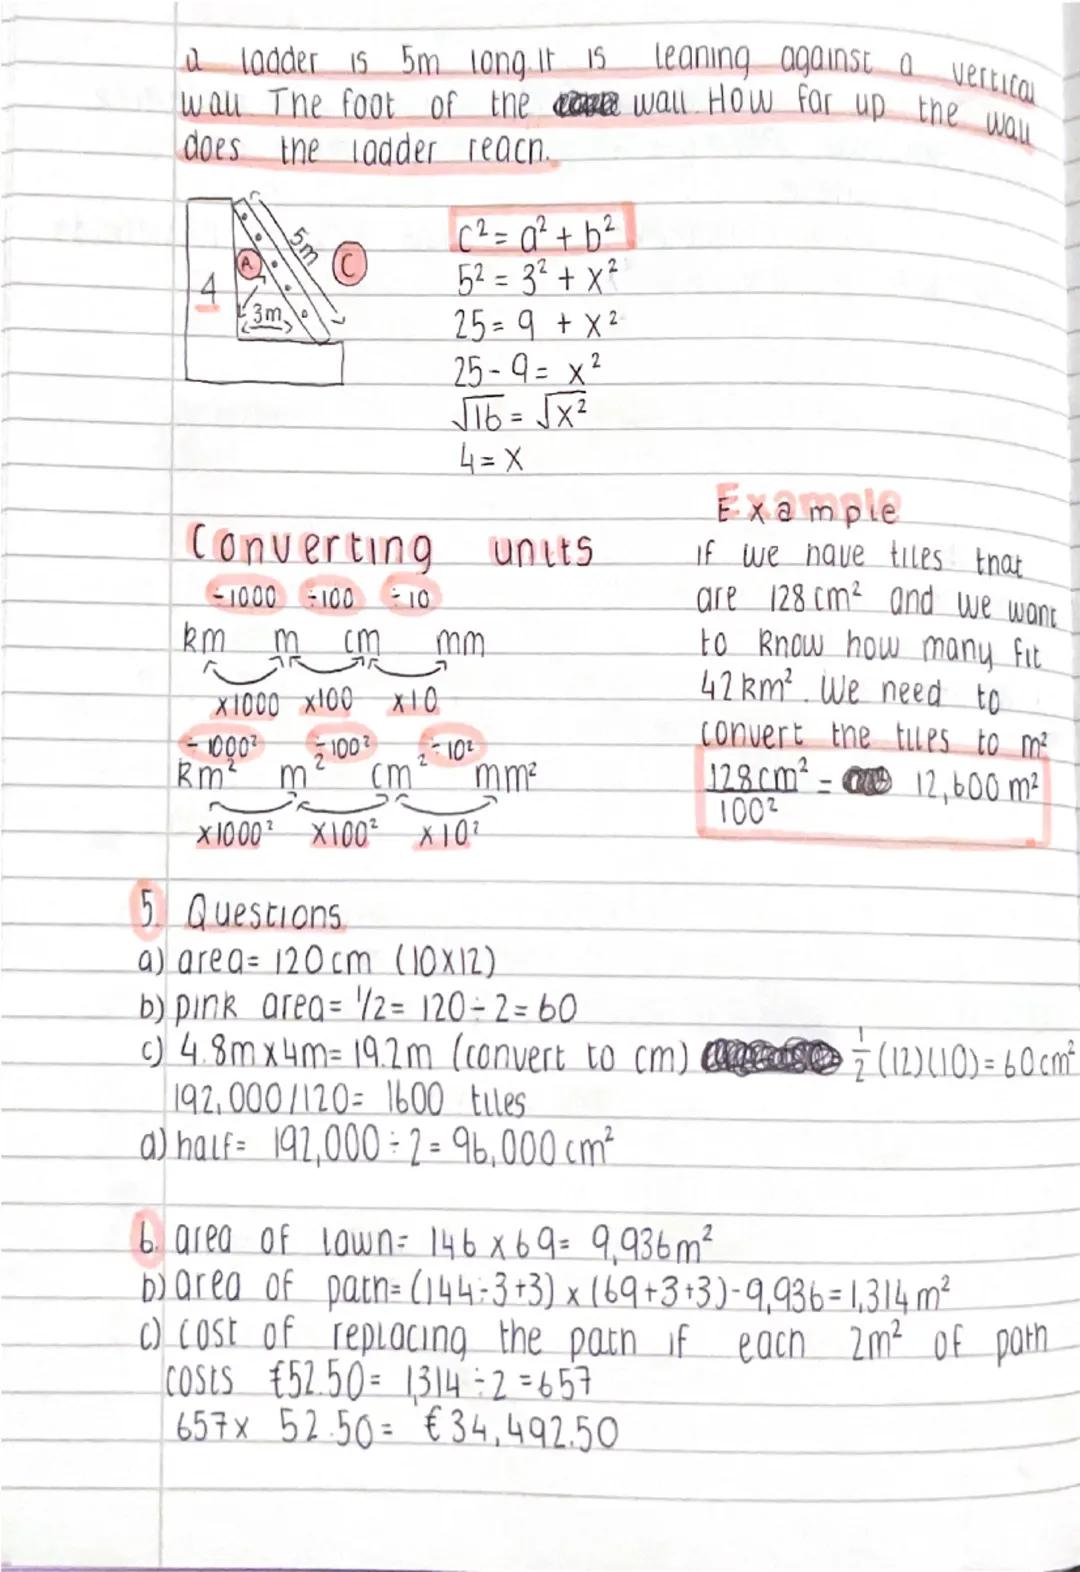 a ladder is 5m long. It is leaning against a vertical
wall The foot of the wall. How far up the wall
does the ladder reach.
5m
A
C
4
3m
c² = a² + b²
5² = 3² + x²
25 = 9 + x²
25 - 9 = x²
√16 = √x²
4 = x
Converting units
÷1000 ÷100 ÷10
km m cm mm
x1000 x100 x10
÷1000² ÷100² ÷10²
km² m² cm² mm²
x1000² x100² x10²
Example
if we have tiles that
are 128 cm² and we want
to know how many fit
42km². We need to
convert the tiles to m²
128cm² = 12,600 m²
100²
5. Questions
a) area= 120cm (10x12)
b) pink area= 1/2= 120÷2=60
c) 4.8m x4m= 19.2m (convert to cm) 1/2 (12)(10)= 60cm²
192,000/120= 1600 tiles
d) half= 192,000÷2=96,000cm²
6. area of lawn= 146 x 69= 9,936m²
b) area of path= (144÷3+3) x (69+3+3)-9,936=1,314m²
c) cost of replacing the path if each 2m² of path
costs €52.50= 1,314÷2=657
657x 52.50= €34,492.50